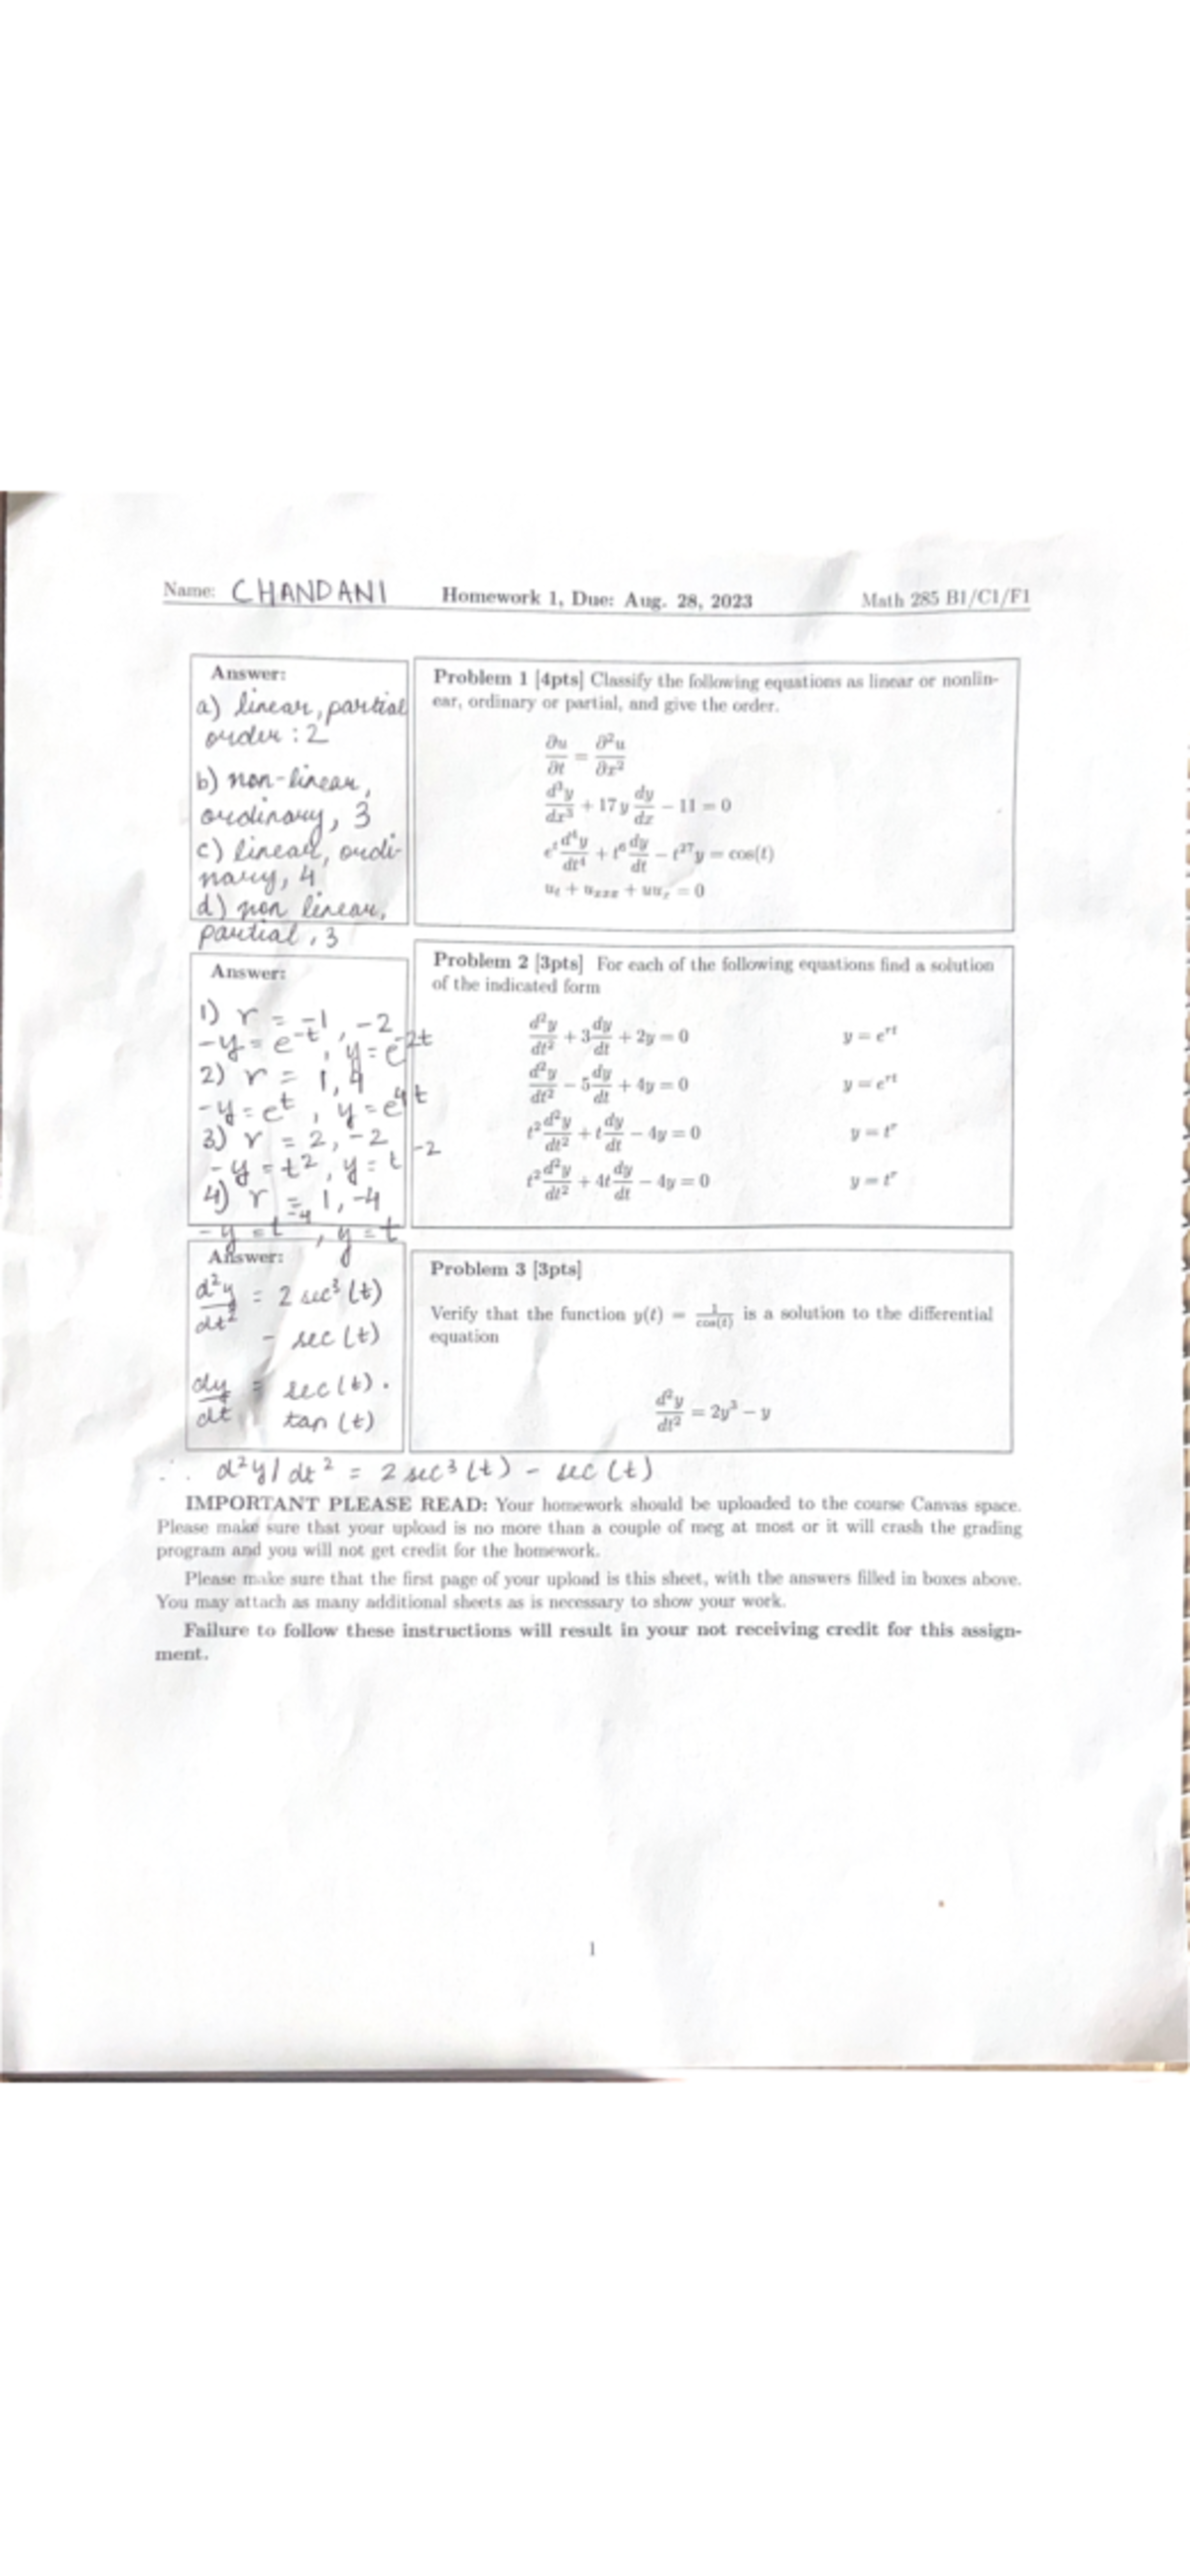 Name: CHANDANI Homework 1, Due: Aug. 28, 2023 Math 285 B1/C1/F1
Answer:
a) linear, partial
order : 2
b) non-linear,
ordinary, 3
c) linear, ordi-
nary, 4
d) non linear,
partial, 3
Problem 1 [4pts] Classify the following equations as linear or nonlin-
ear, ordinary or partial, and give the order.
∂u/∂t = ∂²u/∂x²
d³y/dx³ + 17y dy/dx − 11 = 0
eᵗ d⁴y/dt⁴ + t⁶ dy/dt − t²⁷y = cos(t)
uₜ + uₓₓₓ + uuₓ = 0
Answer:
1) r = -1, -2
- y = e^-t, y = e^-2t
2) r = 1, 4
- y = e^t, y = e^4t
3) r = 2, -2
- y = t², y = t^-2
4) r = 1, -4
- y = t^-4, y = t
Problem 2 [3pts] For each of the following equations find a solution
of the indicated form
d²y/dt² + 3 dy/dt + 2y = 0 y = e^rt
d²y/dt² − 5 dy/dt + 4y = 0 y = e^rt
t² d²y/dt² + t dy/dt − 4y = 0 y = t^r
t² d²y/dt² + 4t dy/dt − 4y = 0 y = t^r
Answer:
d²y/dt² = 2 sec³ (t)
- sec (t)
dy/dt = sec (t) .
tan (t)
Problem 3 [3pts]
Verify that the function y(t) = 1/cos(t) is a solution to the differential
equation
d²y/dt² = 2y³ − y
∴ d²y / dt² = 2 sec³ (t) - sec (t)
IMPORTANT PLEASE READ: Your homework should be uploaded to the course Canvas space.
Please make sure that your upload is no more than a couple of meg at most or it will crash the grading
program and you will not get credit for the homework.
Please make sure that the first page of your upload is this sheet, with the answers filled in boxes above.
You may attach as many additional sheets as is necessary to show your work.
Failure to follow these instructions will result in your not receiving credit for this assign-
ment.
1